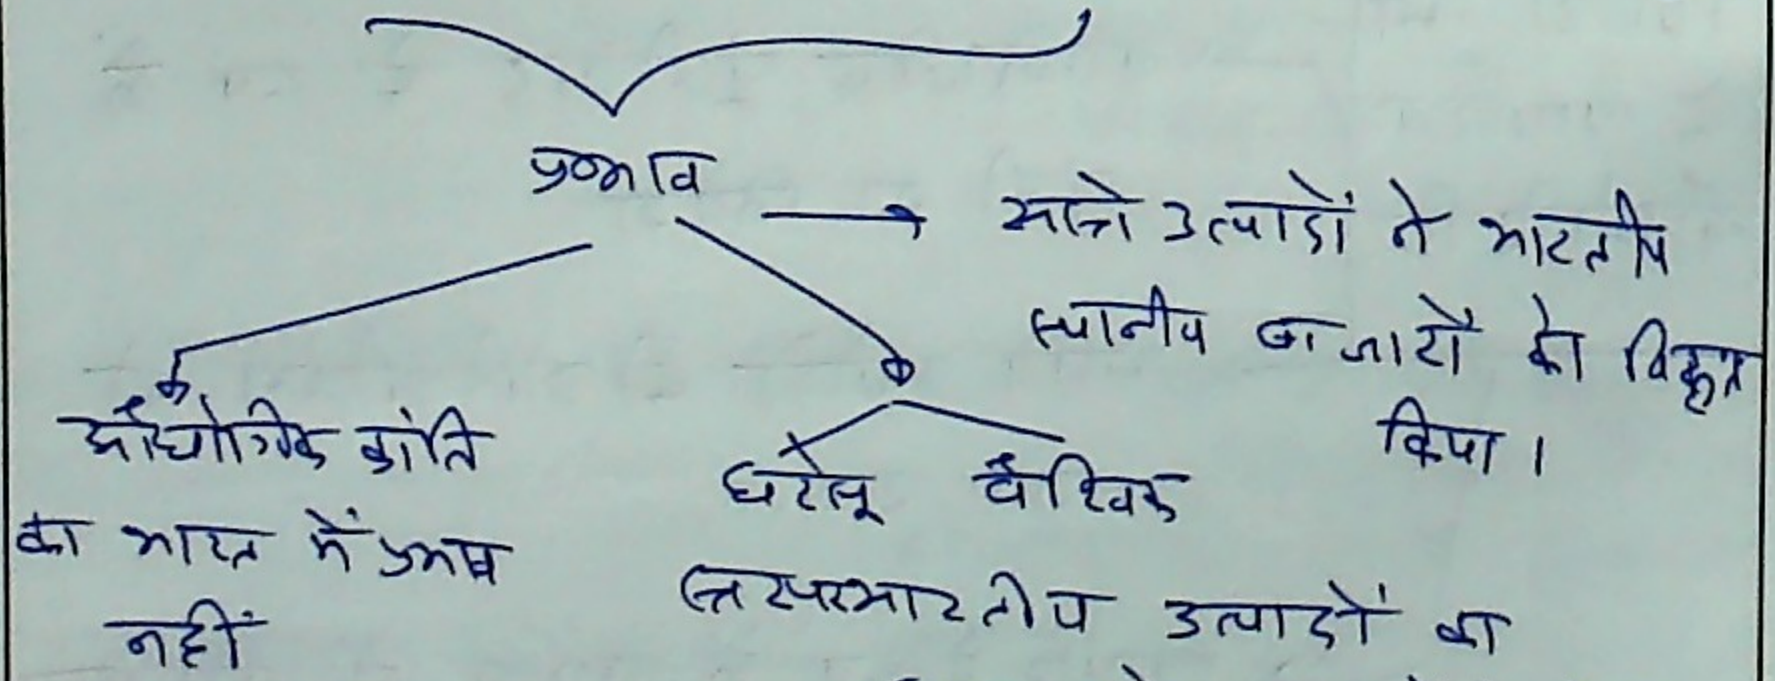 प्रभाव
→ सस्ते उत्पादों ने भारतीय
स्थानीय बाजारों को विकृत
किया।
औद्योगिक क्रांति
का भारत में प्रभाव
नहीं
घरेलू वैश्विक
स्तर पर भारतीय उत्पादों का